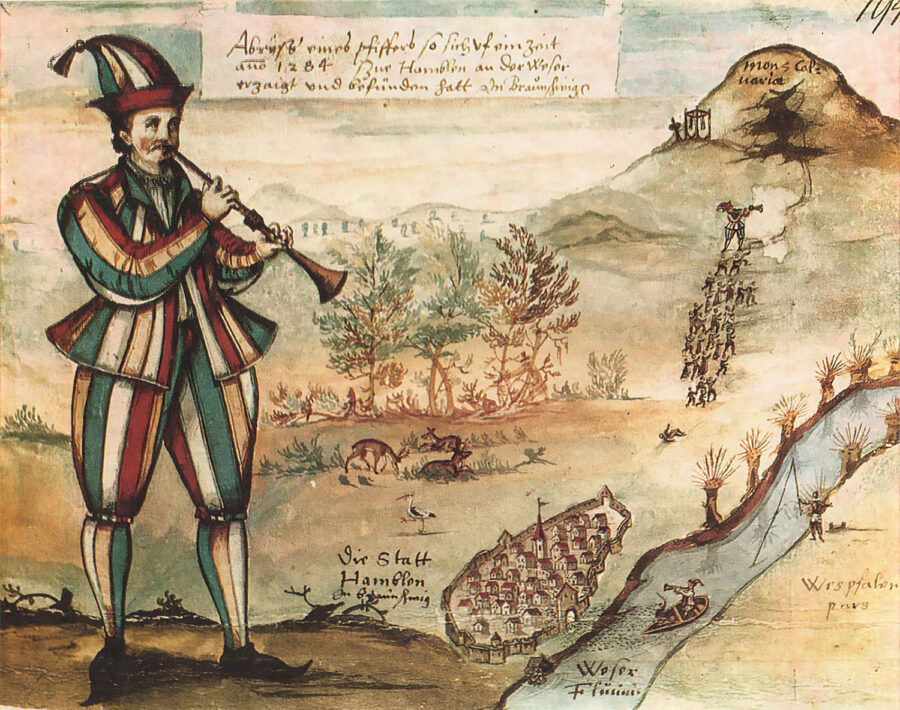 Abryss eines pfiffers so sich uf ein Zeit
año 1284 Zue Hamblen an der Weser
erzaigt und befunden hatt In Braunschwigs
mons Cal
varia
Die Statt
Hamblen
In braunschwig
Wespfalen
pars
Weser
Fluuius